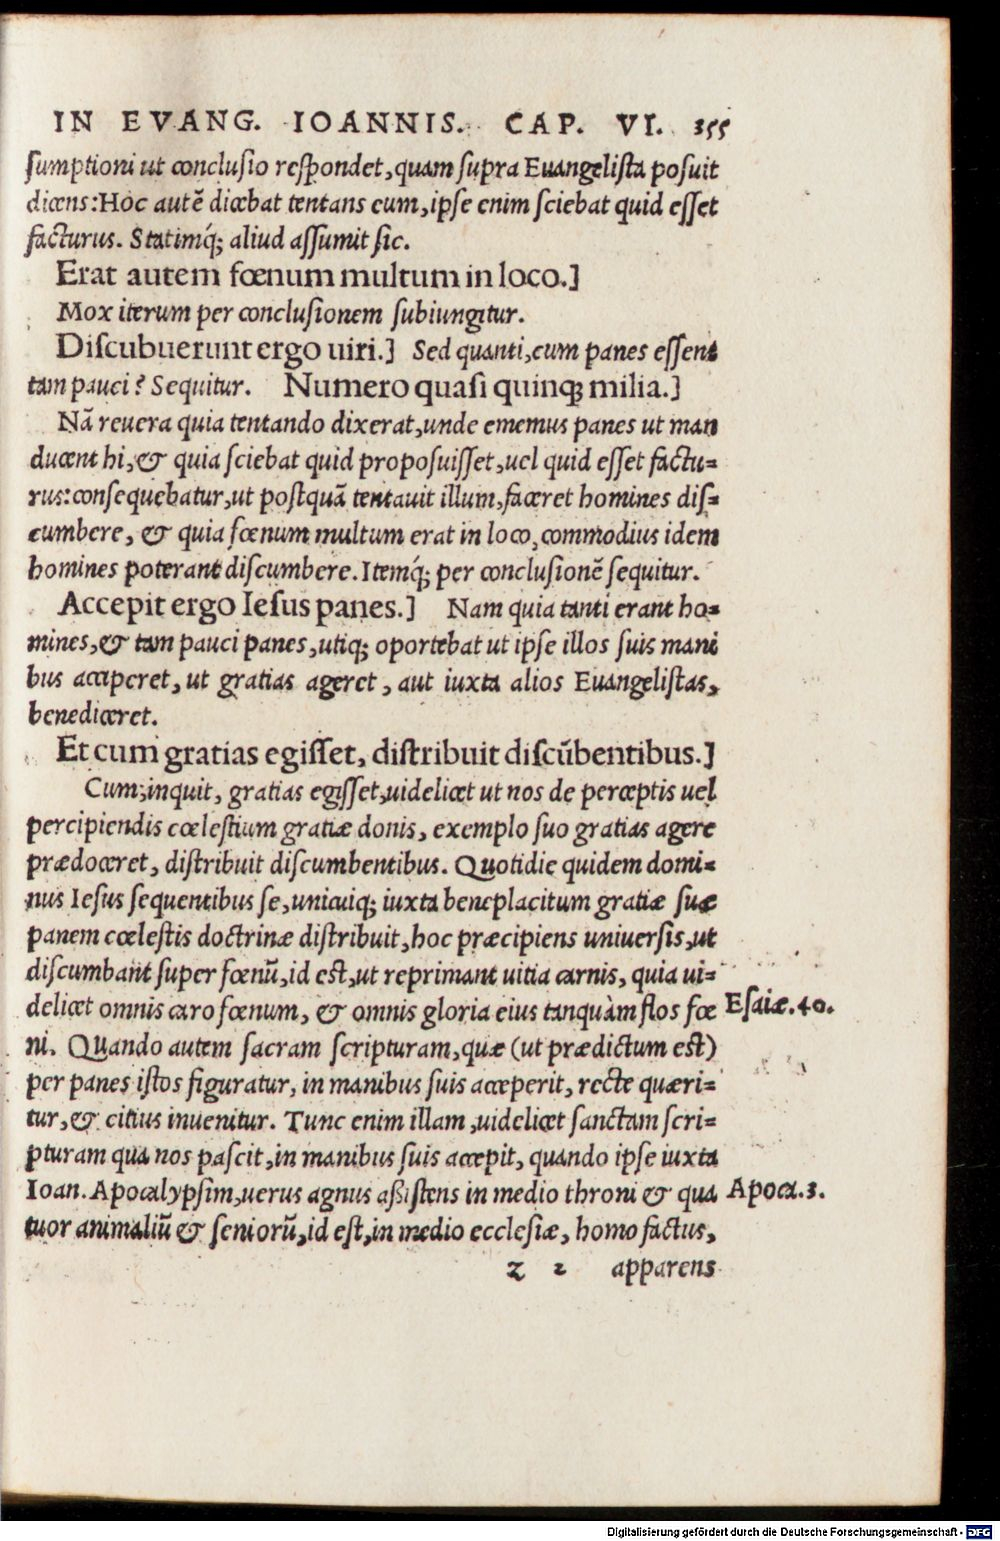 IN EVANG. IOANNIS. CAP. VI. 355
sumptioni ut conclusio respondet, quam supra Euangelista posuit
dicens: Hoc autē dicebat tentans eum, ipse enim sciebat quid esset
facturus. Statimq́; aliud assumit sic.
Erat autem fœnum multum in loco.]
Mox iterum per conclusionem subiungitur.
Discubuerunt ergo uiri.] Sed quanti, cum panes essent
tam pauci? Sequitur. Numero quasi quinq; milia.]
Nā reuera quia tentando dixerat, unde ememus panes ut man
ducent hi, & quia sciebat quid proposuisset, uel quid esset factu-
rus: consequebatur, ut postquā tentauit illum, faceret homines dis-
cumbere, & quia fœnum multum erat in loco, commodius idem
homines poterant discumbere. Itemq́; per conclusionē sequitur.
Accepit ergo Iesus panes.] Nam quia tanti erant ho-
mines, & tam pauci panes, utiq; oportebat ut ipse illos suis mani
bus acciperet, ut gratias ageret, aut iuxta alios Euangelistas,
benediceret.
Et cum gratias egisset, distribuit discūbentibus.]
Cum, inquit, gratias egisset, uidelicet ut nos de perceptis uel
percipiendis cœlestium gratiæ donis, exemplo suo gratias agere
prædoceret, distribuit discumbentibus. Quotidie quidem domi-
nus Iesus sequentibus se, unicuiq; iuxta beneplacitum gratiæ suæ
panem cœlestis doctrinæ distribuit, hoc præcipiens uniuersis, ut
discumbant super fœnū, id est, ut reprimant uitia carnis, quia ui-
delicet omnis caro fœnum, & omnis gloria eius tanquàm flos fœ Esaiæ. 40.
ni. Quando autem sacram scripturam, quæ (ut prædictum est)
per panes istos figuratur, in manibus suis acceperit, recte quæri-
tur, & citius inuenitur. Tunc enim illam, uidelicet sanctam scri-
pturam qua nos pascit, in manibus suis accepit, quando ipse iuxta
Ioan. Apocalypsim, uerus agnus assistens in medio throni & qua Apoca. 3.
tuor animaliū & seniorū, id est, in medio ecclesiæ, homo factus,
z 2 apparens
Digitalisierung gefördert durch die Deutsche Forschungsgemeinschaft - DFG